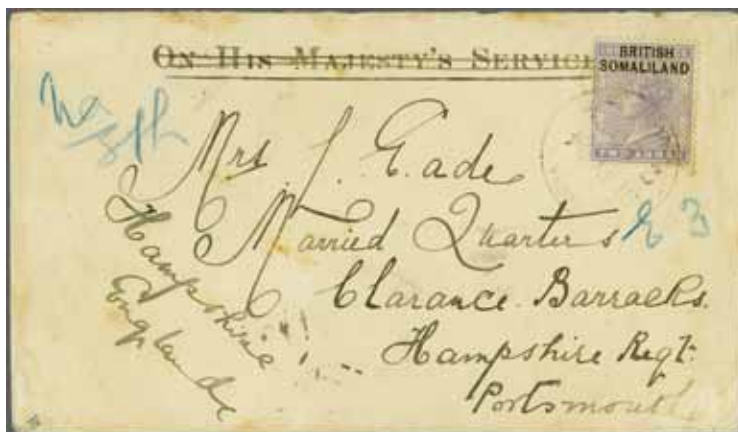 ON HIS MAJESTY'S SERVICE
BRITISH
SOMALILAND
TWO ANNAS
Mrs J. Eade
Married Quarters
Clarance Barracks.
Hampshire Regt.
Portsmouth
Hampshire
England